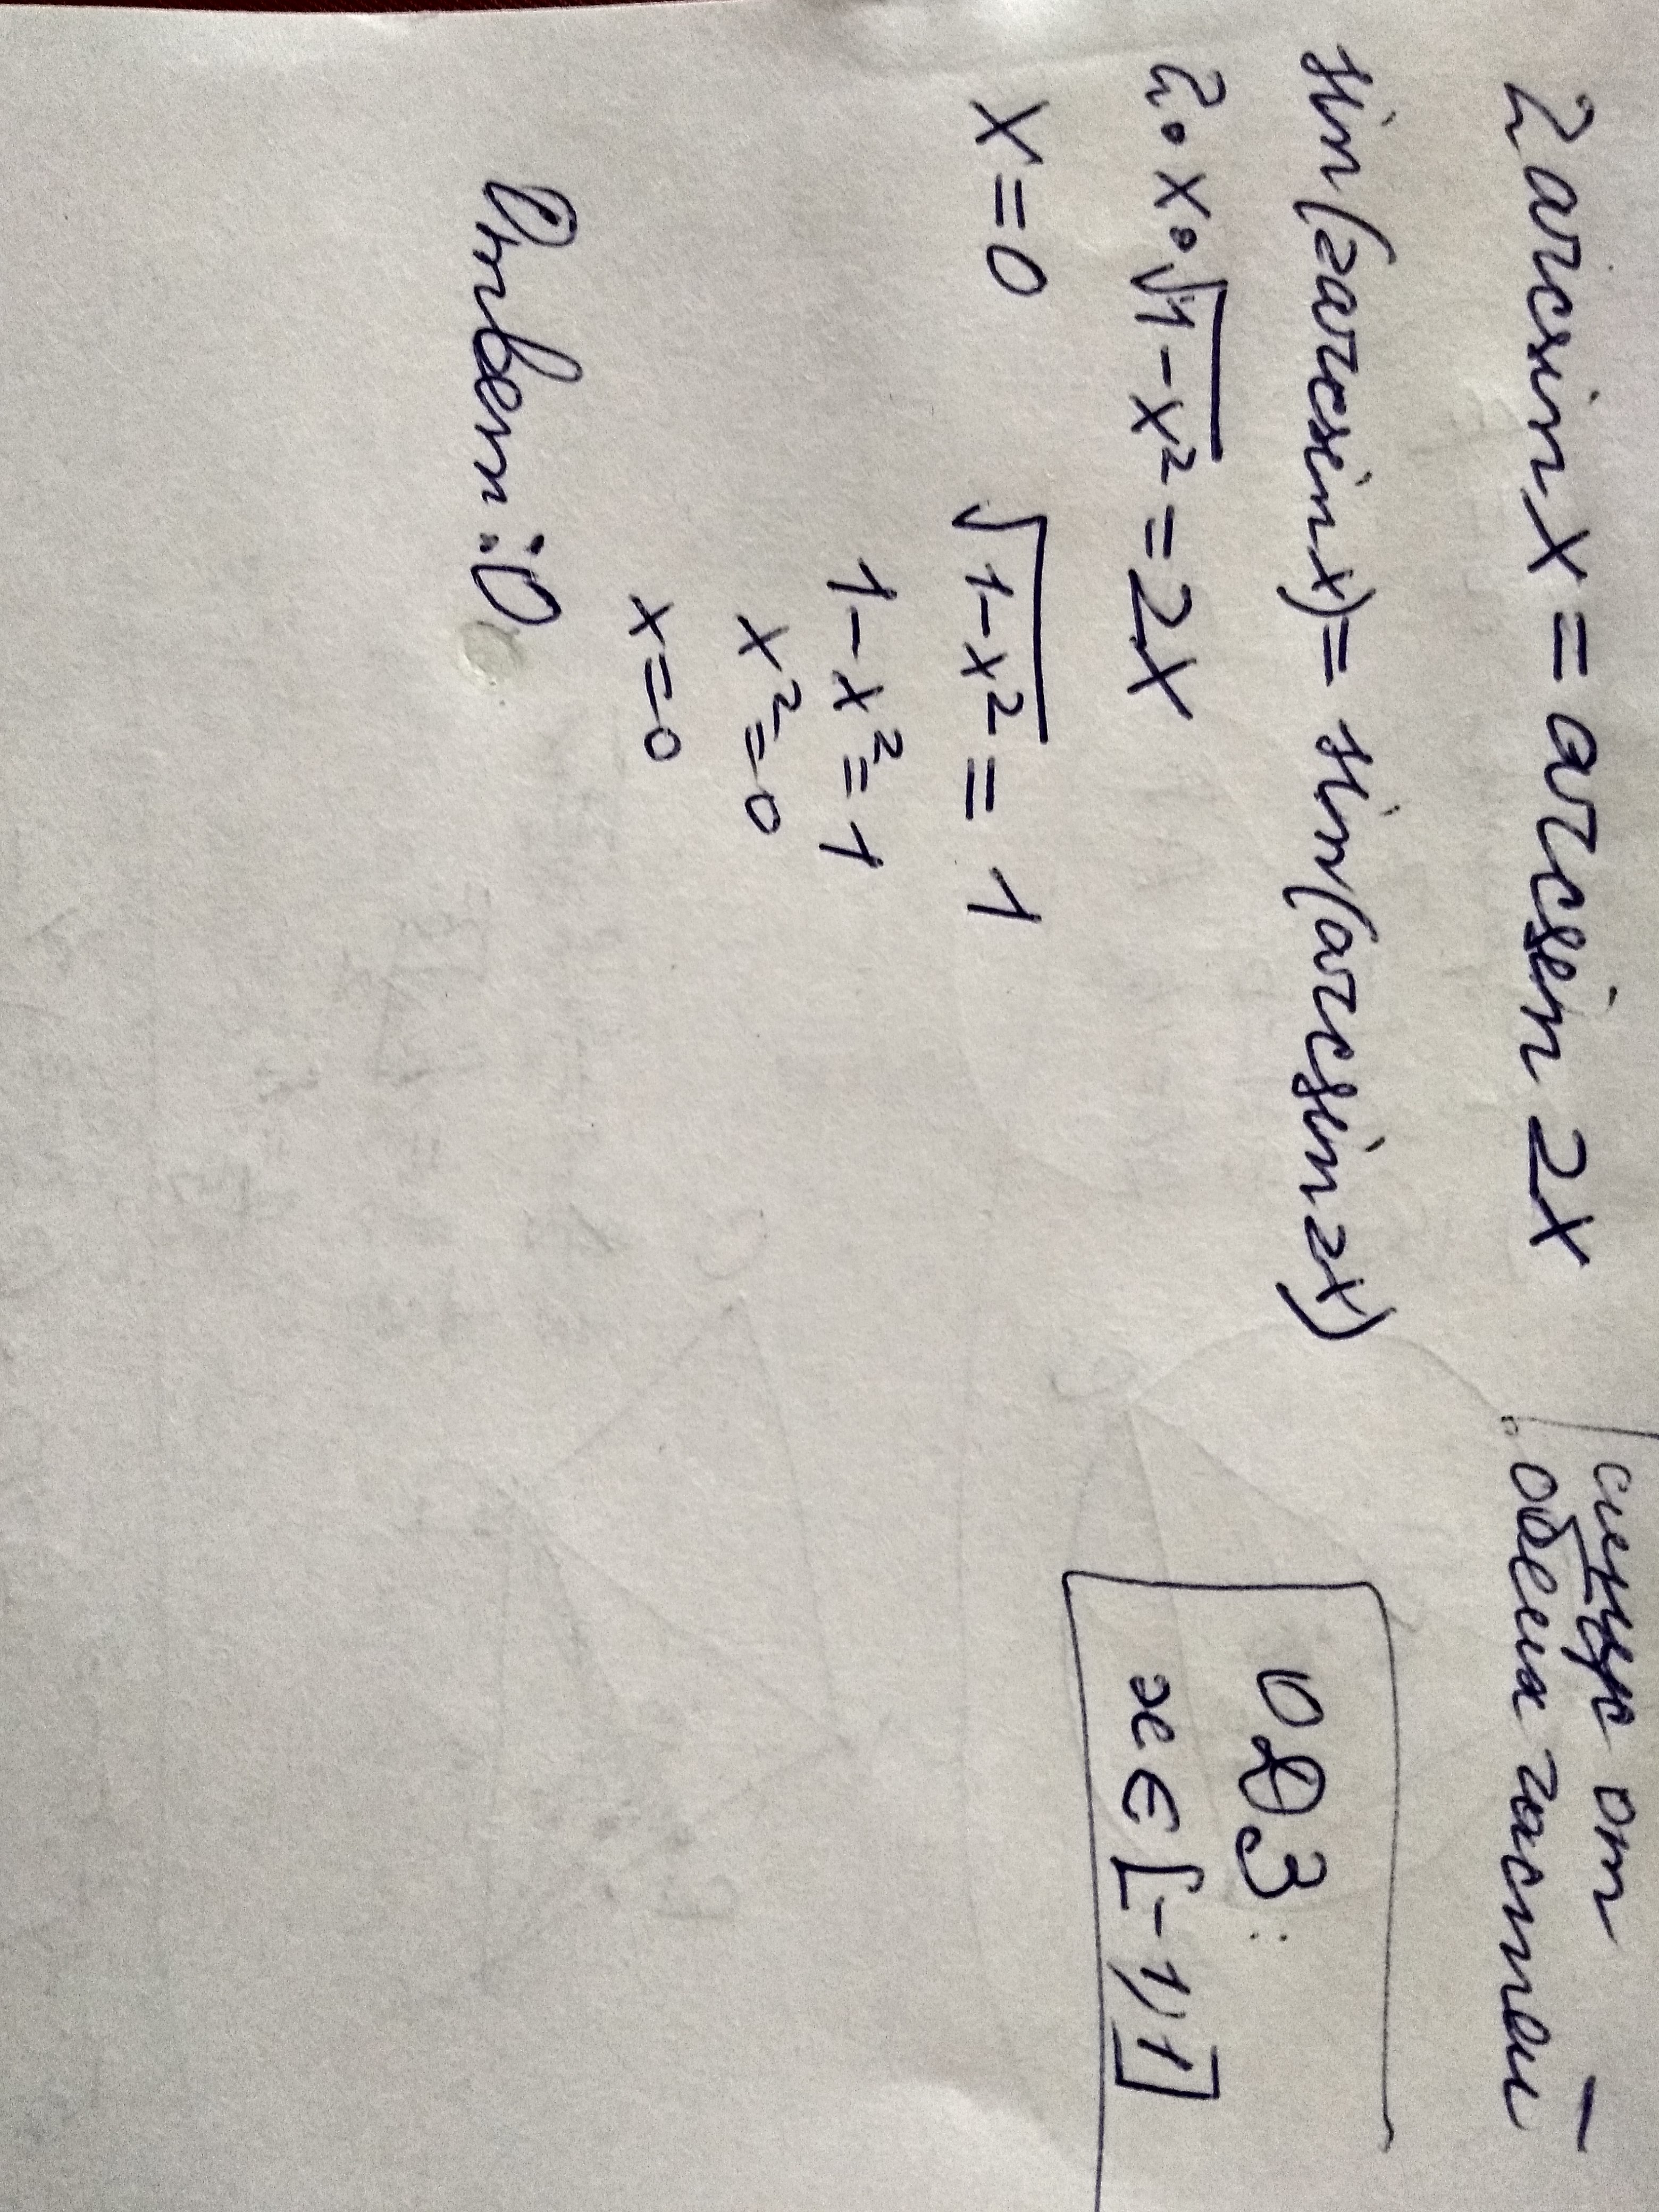 2 arcsin x = arcsin 2x
синус от
обеих частей
sin(2arcsin x) = sin(arcsin 2x)
2•x•√1-x² = 2x
ОДЗ:
x ∈ [-1,1]
x = 0
√1-x² = 1
1-x² = 1
x² = 0
x = 0
Ответ: 0